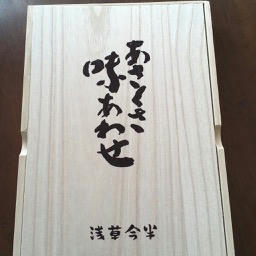 あさくさ
味あわせ
浅草今半